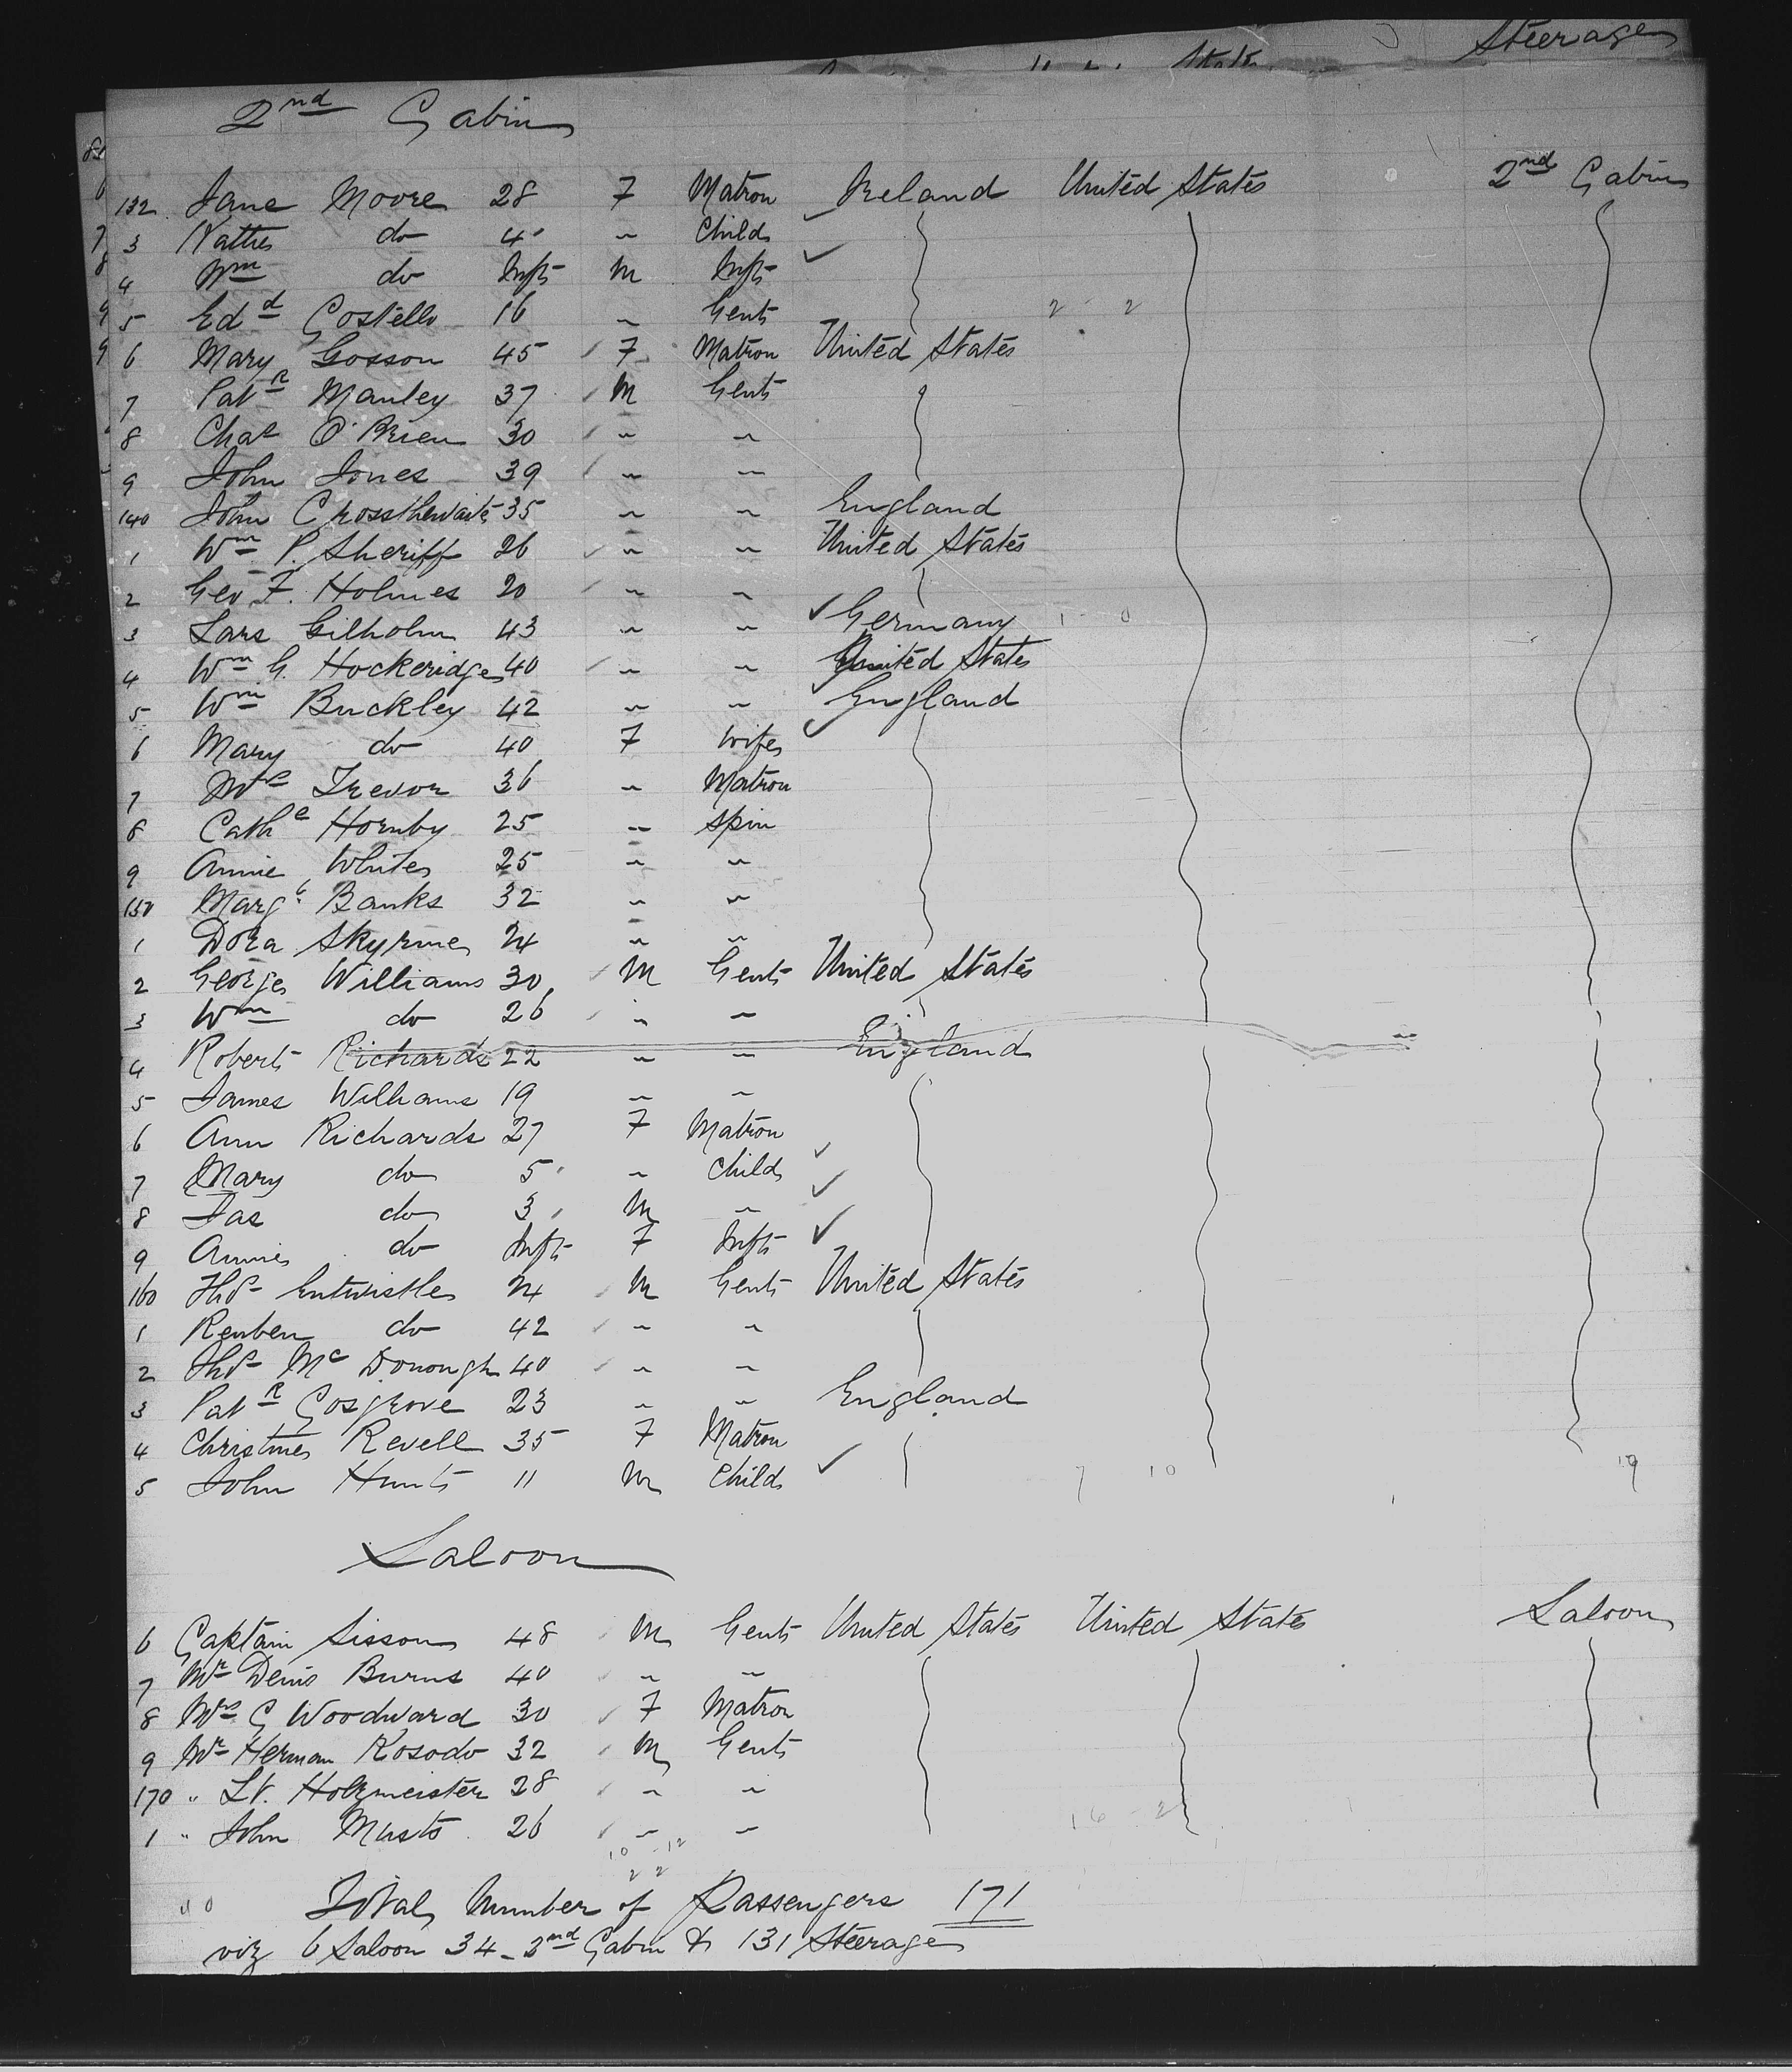 Steerage
2nd Cabin
132 Jane Moore 28 F Matron Ireland United States 2nd Cabin
3 do 4 " Child
4 Wm do Inft M Inft
5 Edd Costello 16 " Gent 2 - 2
6 Mary Gosson 45 F Matron United States
7 Patk Manley 37 M Gent
8 Chas O'Brien 30 " "
9 John Jones 39 " "
140 John Crossthwaite 35 " " England
1 Wm P. Sheriff 26 " " United States
2 Geo F. Holmes 20 " "
3 Lars Gilholm 43 " " Germany 1 - 0
4 Wm G. Hockeridge 40 " " United States
5 Wm Buckley 42 " " England
6 Mary do 40 F Wife
7 Mrs Trevor 36 " Matron
8 Cathe Hornby 25 " Spin
9 Annie White 25 " "
150 Margt Banks 32 " "
1 Dora Skyrme 24 " "
2 George Williams 30 M Gent United States
3 Wm do 26 " "
4 Robert Richards 22 " " England
5 James Williams 19 " "
6 Ann Richards 27 F Matron
7 Mary do 5 " Child
8 Jas do 3 M "
9 Annie do Inft F Inft
160 Thos Entwistle 24 M Gent United States
1 Reuben do 42 " "
2 Thos Mc Donough 40 " "
3 Patk Cosgrove 23 " " England
4 Christine Revell 35 F Matron
5 John Hunt 11 M Child 7 10 19
Saloon
6 Captain Sisson 48 M Gent United States United States Saloon
7 Mr Denis Burns 40 " "
8 Mrs C Woodward 30 F Matron
9 Mr Herman Kosodo 32 M Gent
170 " Lt. Holzmeister 28 " "
1 " John Musto 26 " "
10 - 12
22
Total Number of Passengers 171
viz 6 Saloon 34 - 2nd Cabin & 131 Steerage